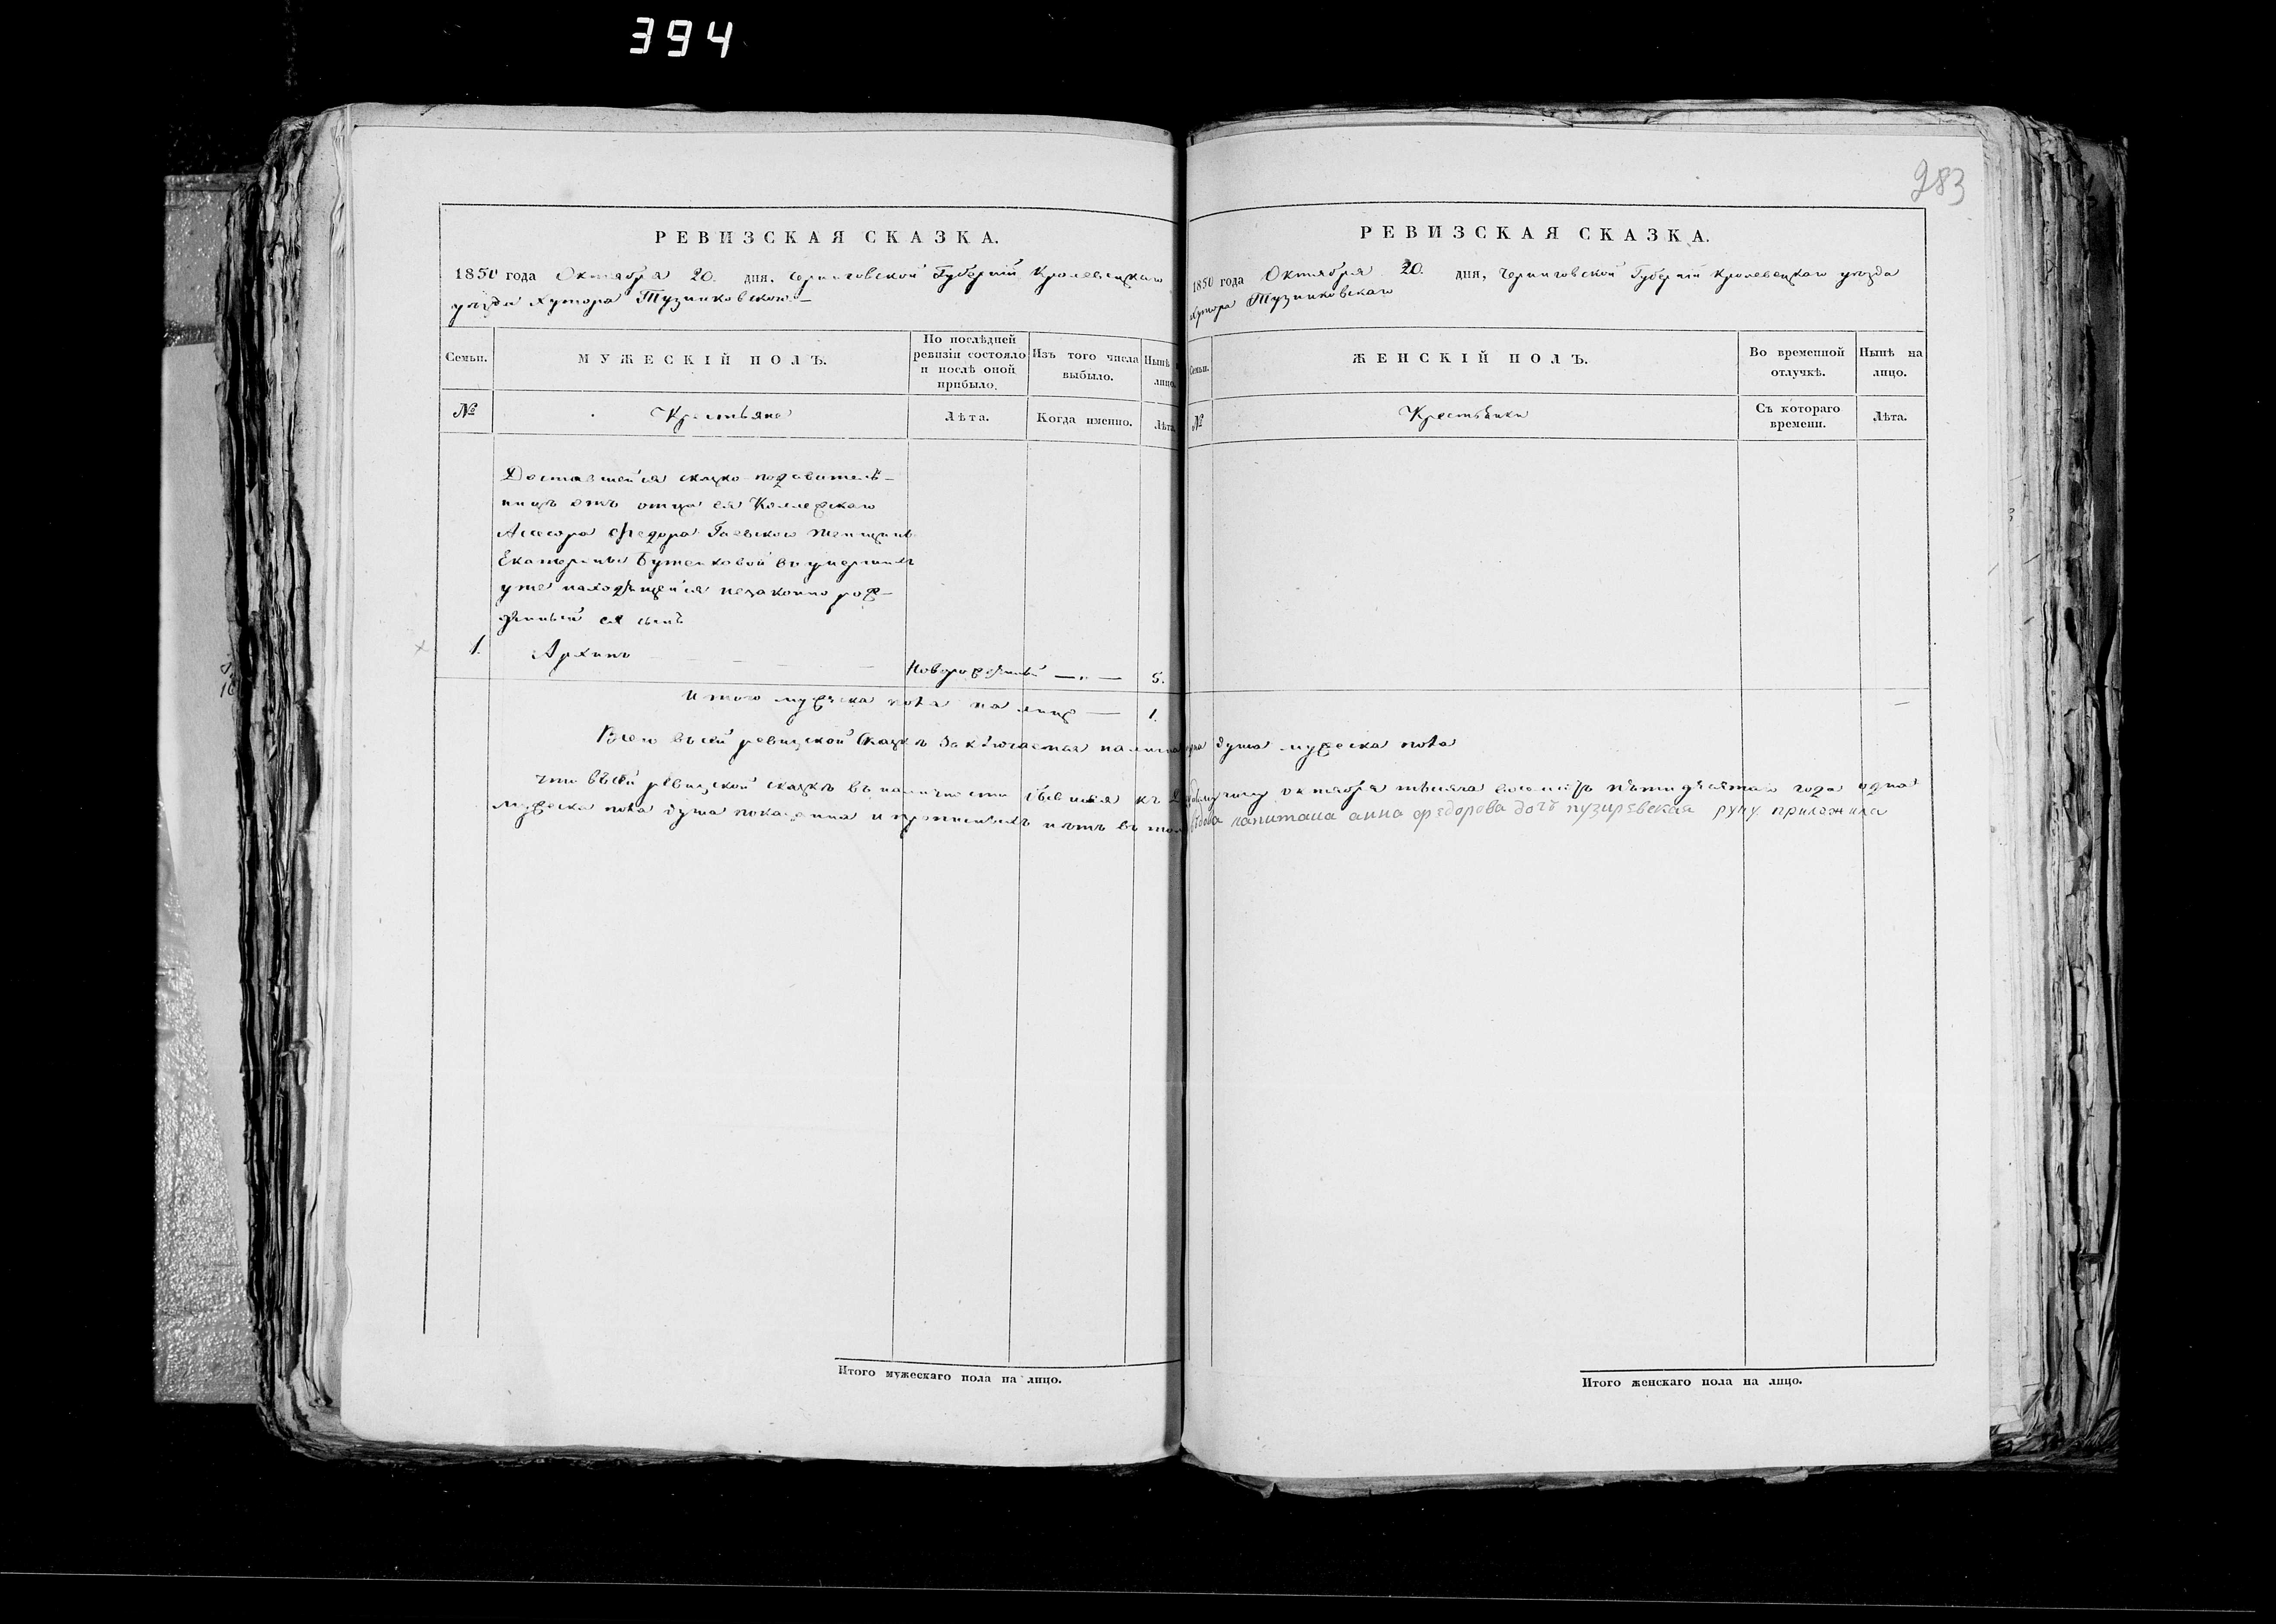 394
283
РЕВИЗСКАЯ СКАЗКА.
1850 года Октября 20. дня, Черниговской Губерніи Кролевецкаго
уѣзда Хутора Тузиковского
Семьи.
МУЖЕСКІЙ ПОЛЪ.
По послѣдней ревизіи состояло и послѣ оной прибыло.
Изъ того числа выбыло.
Нынѣ лицо.
№
Крестьяне
Лѣта.
Когда именно.
Лѣта
Доставшейся сказко подавитель-
ницѣ отъ отца ея Коллежскаго
Ассесора Федора Гаевского женщинѣ
Екатерины Бутенковой въ умершихъ
уже находящейся незаконно рож-
денный ея сынъ
1. Архипъ Новорожденный 5.
Итого мужеска пола на лицо 1.
Всего въ сей ревизской сказкѣ заключается на лицо
что въ сей ревизской сказкѣ въ наличности къ
мужеска пола душа показанна и прописныхъ нѣтъ въ том
Итого мужескаго пола на лицо.
РЕВИЗСКАЯ СКАЗКА.
1850 года Октября 20. дня, Черниговской Губерніи Кролевецкаго уѣзда
хутора Тузиковскаго
Семьи.
ЖЕНСКІЙ ПОЛЪ.
Во временной отлучкѣ.
Нынѣ на лицо.
№
Крестьянки
Съ котораго времени.
Лѣта.
душа мужеска пола
числу октября тысяча восемьсотъ пятидесятаго года одна
вдова капитана анна федорова дочь пузиревская руку приложила
Итого женскаго пола на лицо.